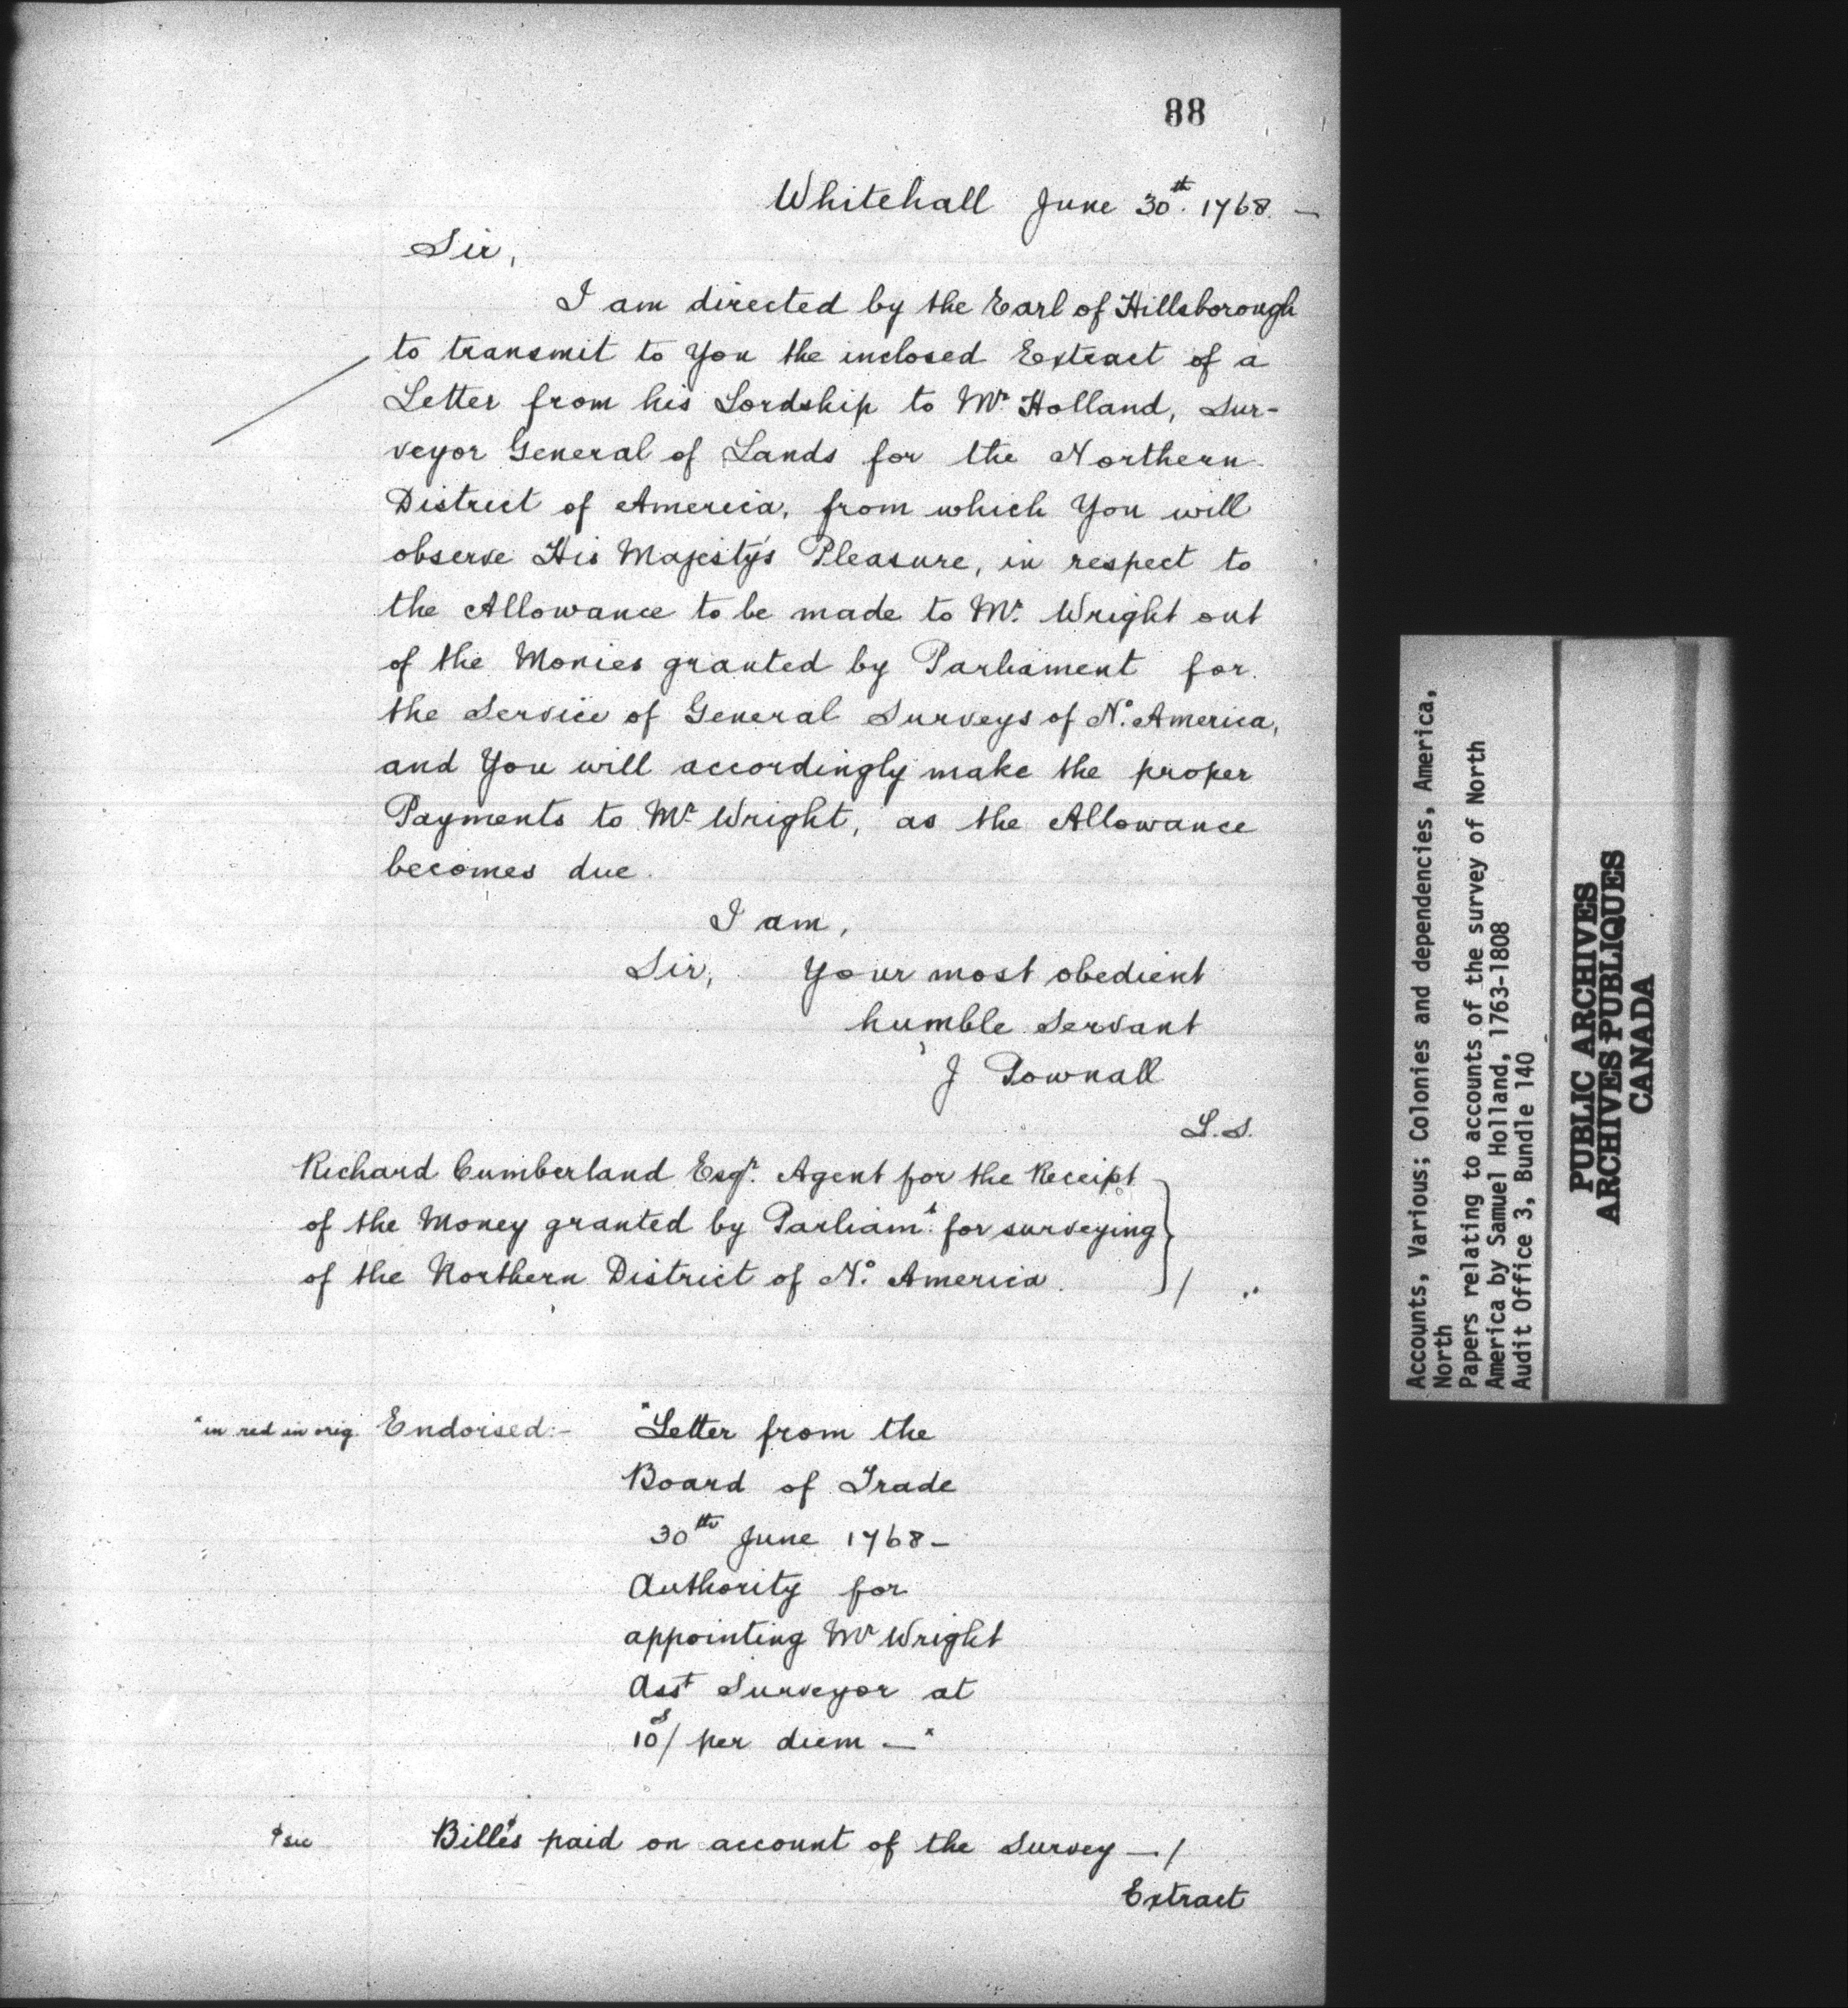 88
Whitehall June 30th. 1768. —
Sir,
I am directed by the Earl of Hillsborough
to transmit to You the inclosed Extract of a
Letter from his Lordship to Mr. Holland, Sur-
veyor General of Lands for the Northern
District of America, from which You will
observe His Majesty's Pleasure, in respect to
the Allowance to be made to Mr. Wright out
of the Monies granted by Parliament for
the Service of General Surveys of No. America,
and You will accordingly make the proper
Payments to Mr. Wright, as the Allowance
becomes due.
I am,
Sir, Your most obedient
humble Servant
J Pownall
L.S.
Richard Cumberland Esqr. Agent for the Receipt
of the Money granted by Parliamt. for surveying
of the Northern District of No. America.
*in red in orig. Endorsed:- *Letter from the
Board of Trade
30th June 1768 —
Authority for
appointing Mr Wright
Asst Surveyor at
10s/ per diem —*
† sic Bille's paid on account of the Survey —/
Extract
Accounts, Various; Colonies and dependencies, America,
North
Papers relating to accounts of the survey of North
America by Samuel Holland, 1763-1808
Audit Office 3, Bundle 140
PUBLIC ARCHIVES
ARCHIVES PUBLIQUES
CANADA